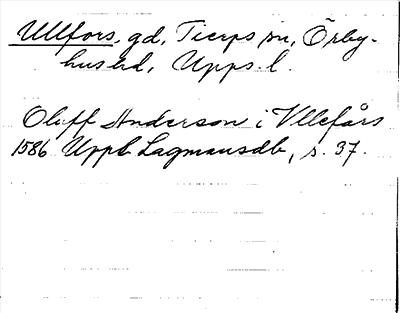 Ullfors, gd, Tierps sn, Örby-
hus hd, Upps. l.
Oluff Anderson i Vllefårs
1586 Uppl. Lagmansdb, s. 37.